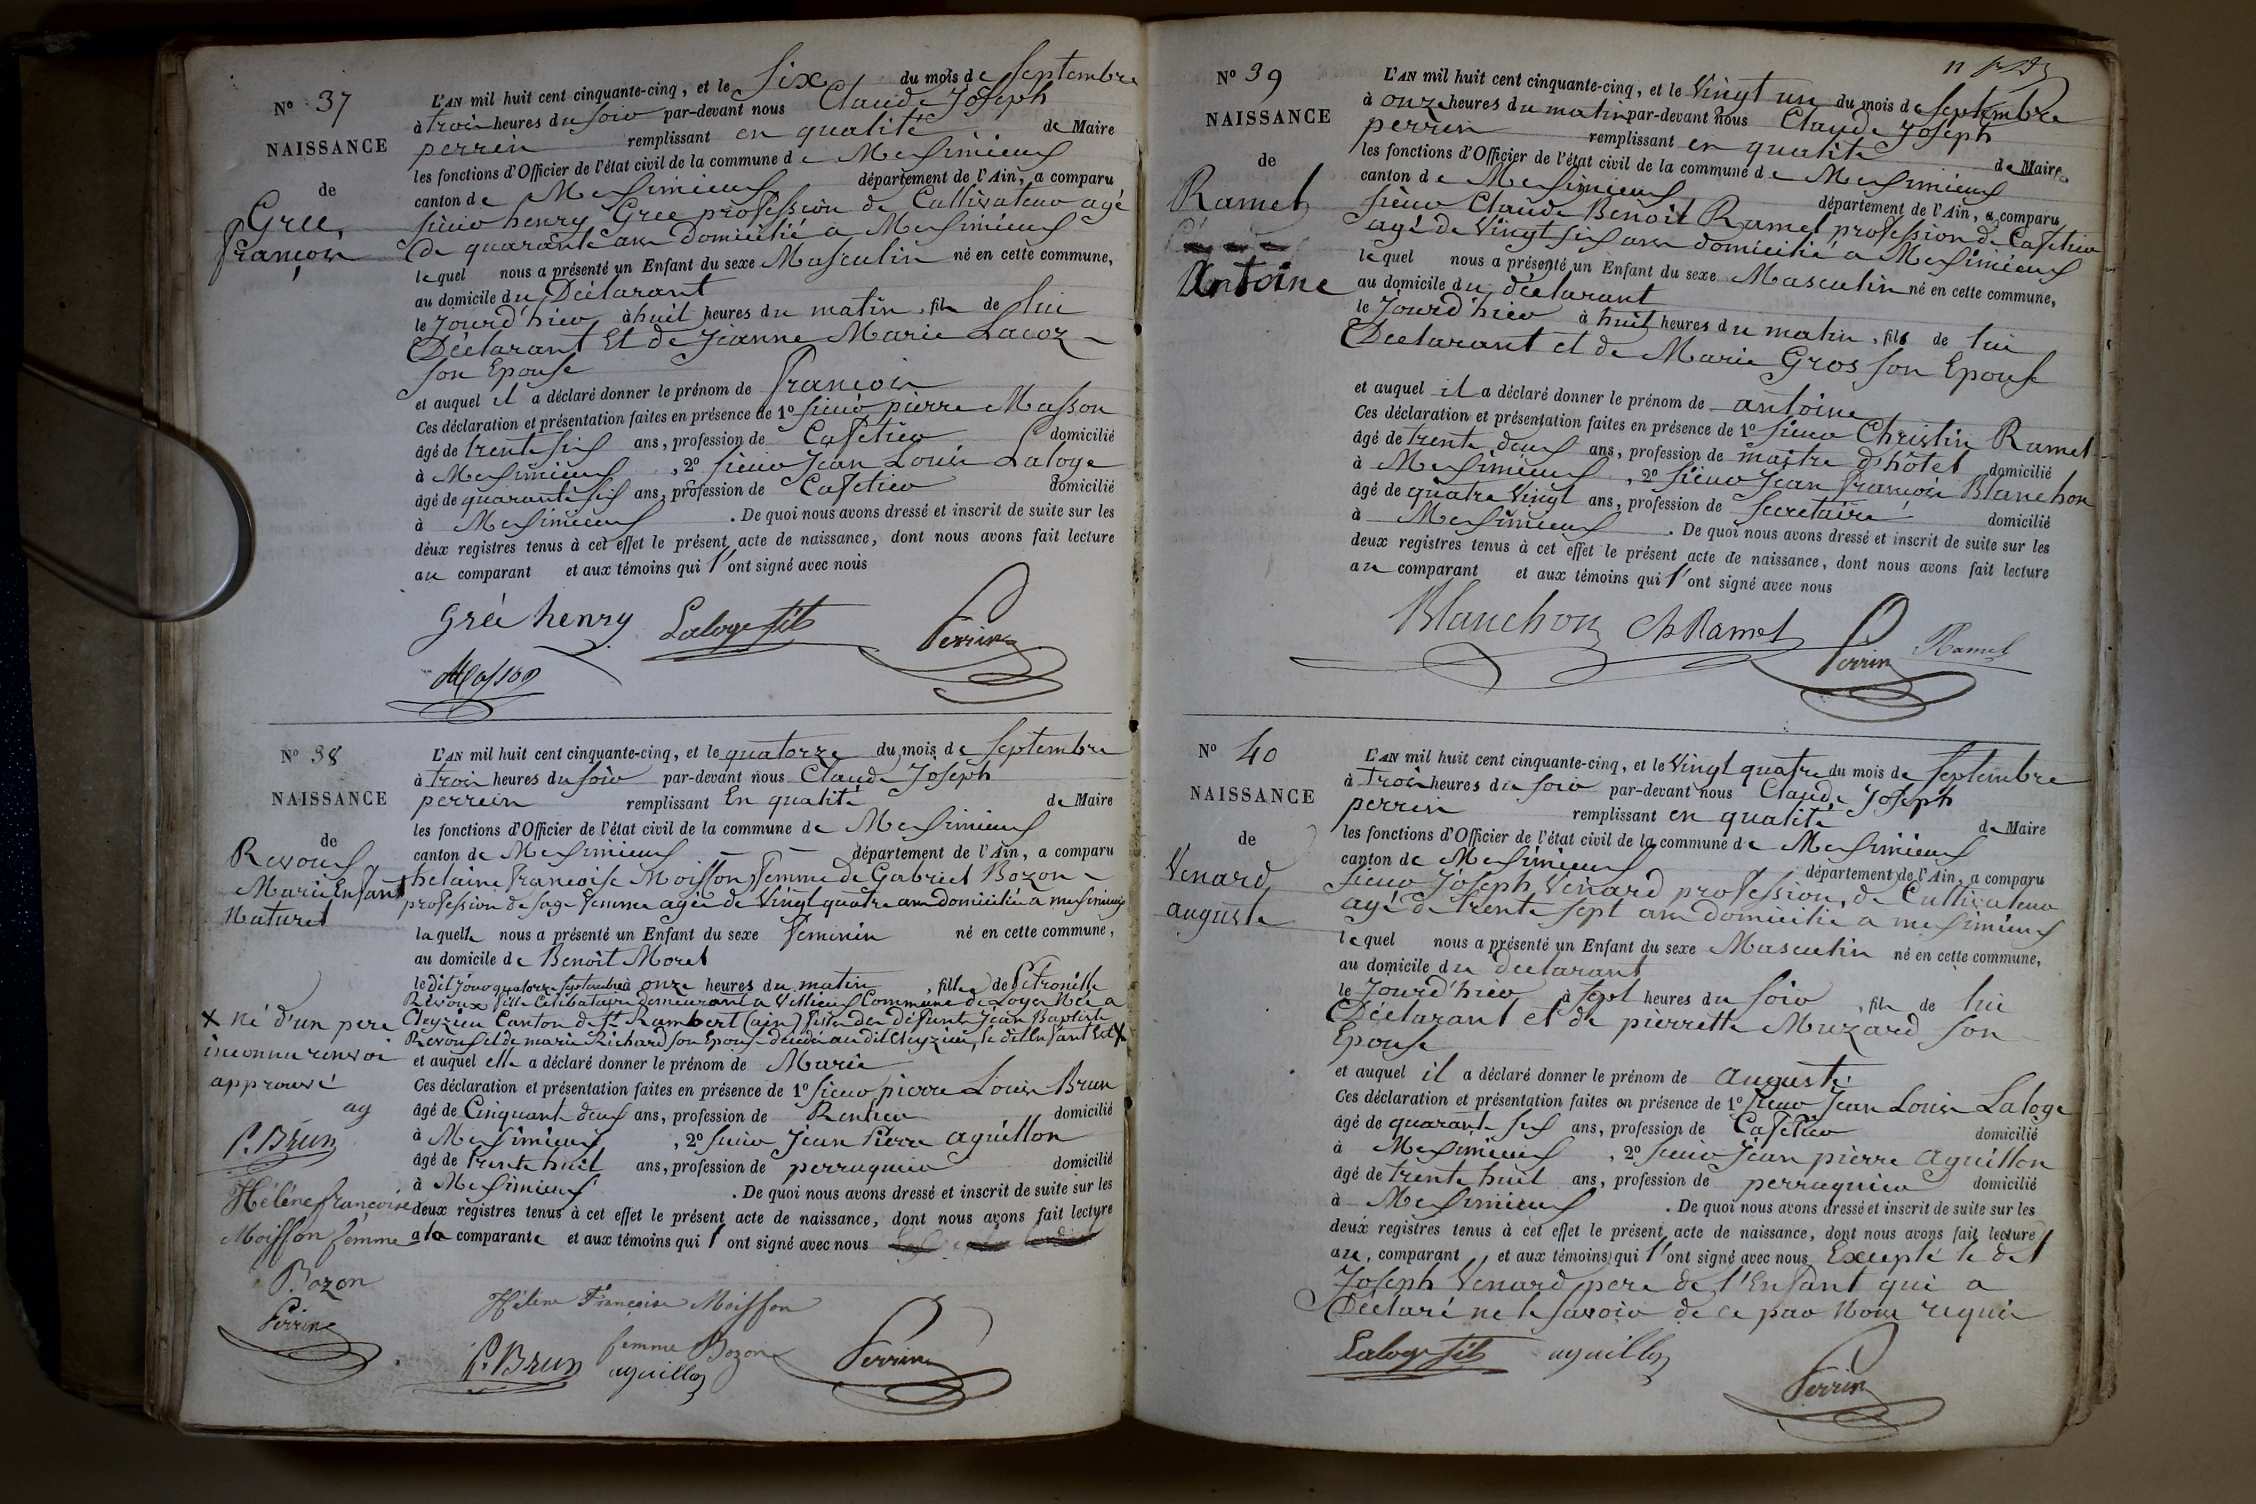 N° 37
NAISSANCE
de
Gree,
françois
L'AN mil huit cent cinquante-cinq, et le Six du mois de Septembre
à trois heures du soir par-devant nous Claude Joseph
perrin remplissant en qualité de Maire
les fonctions d'Officier de l'état civil de la commune de Meximieux
canton de Meximieux département de l'Ain, a comparu
sieur henry Gree profession de Cultivateur agé
de quarante ans domicilié a Meximieux
lequel nous a présenté un Enfant du sexe Masculin né en cette commune,
au domicile du Déclarant
le Jourd'hier à huit heures du matin, fils de lui
Déclarant Et de Jeanne Marie Lacoz
son Epouse
et auquel il a déclaré donner le prénom de françois
Ces déclaration et présentation faites en présence de 1° sieur pierre Masson
âgé de trente six ans, profession de Cafetier domicilié
à Meximieux, 2° sieur Jean Louis Laloge
âgé de quarante six ans, profession de Cafetier domicilié
à Meximieux. De quoi nous avons dressé et inscrit de suite sur les
deux registres tenus à cet effet le présent acte de naissance, dont nous avons fait lecture
au comparant et aux témoins qui l'ont signé avec nous
Gréé henry Laloge fils Perrin
Masson
N° 38
NAISSANCE
de
Revoux
Marie Enfant
Naturel
L'AN mil huit cent cinquante-cinq, et le quatorze du mois de Septembre
à trois heures du soir par-devant nous Claude Joseph
perrein remplissant En qualité de Maire
les fonctions d'Officier de l'état civil de la commune de Meximieux
canton de Meximieux département de l'Ain, a comparu
helaine francoise Moisson femme de Gabriel Bozon
profession de sage femme agée de Vingt quatre ans domiciliée a meximieux
laquelle nous a présenté un Enfant du sexe feminin né en cette commune,
au domicile de Benoit Morel
le dit jour quatorze septembre à onze heures du matin, fille de Pétronille
Révoux fille Celibataire demeurant a Villieux Commune de Loyes Née a
Cleyzieu Canton de St Rambert (ain) fille de défunt Jean Baptiste
Revoux et de marie Richard son Epouse décédée au dit Cleyzieu, le dit Enfant est X
et auquel elle a déclaré donner le prénom de Marie
Ces déclaration et présentation faites en présence de 1° sieur pierre Louis Brun
âgé de Cinquante deux ans, profession de Rentier domicilié
à Meximieux, 2° sieur Jean Pierre aguillon
âgé de trente huit ans, profession de perruquier domicilié
à Meximieux. De quoi nous avons dressé et inscrit de suite sur les
deux registres tenus à cet effet le présent acte de naissance, dont nous avons fait lecture
a la comparante et aux témoins qui l'ont signé avec nous
X né d'un pere
inconnu renvoi
approuvé
ag
P. Brun
Hélène françoise
Moisson femme
Bozon
Perrin
Hélène Françoise Moisson
femme Bozon
P. Brun aguillon Perrin
11
N° 39
NAISSANCE
de
Ramel
Antoine
L'AN mil huit cent cinquante-cinq, et le Vingt un du mois de Septembre
à onze heures du matin par-devant nous Claude Joseph
perrin remplissant en qualité de Maire
les fonctions d'Officier de l'état civil de la commune de Meximieux
canton de Meximieux département de l'Ain, a comparu
sieur Claude Benoit Ramel profession de Cafetier
agé de Vingt six ans domicilié a Meximieux
lequel nous a présenté un Enfant du sexe Masculin né en cette commune,
au domicile du déclarant
le Jourd'hier à huit heures du matin, fils de lui
Déclarant et de Marie Gros son Epouse
et auquel il a déclaré donner le prénom de antoine
Ces déclaration et présentation faites en présence de 1° sieur Christin Ramel
âgé de trente deux ans, profession de maitre d'hôtel domicilié
à Meximieux, 2° sieur Jean françois Blanchon
âgé de quatre Vingt ans, profession de Secretaire domicilié
à Meximieux. De quoi nous avons dressé et inscrit de suite sur les
deux registres tenus à cet effet le présent acte de naissance, dont nous avons fait lecture
au comparant et aux témoins qui l'ont signé avec nous
Blanchon Ch Ramel Perrin Ramel
N° 40
NAISSANCE
de
Venard,
auguste
L'AN mil huit cent cinquante-cinq, et le Vingt quatre du mois de Septembre
à trois heures du soir par-devant nous Claude Joseph
perrin remplissant en qualité de Maire
les fonctions d'Officier de l'état civil de la commune de Meximieux
canton de Meximieux département de l'Ain, a comparu
sieur Joseph Venard profession de Cultivateur
agé de trente sept ans domicilié a meximieux
lequel nous a présenté un Enfant du sexe Masculin né en cette commune,
au domicile du declarant
le Jourd'hier à sept heures du soir, fils de lui
Déclarant et de pierrette Muzard son
Epouse
et auquel il a déclaré donner le prénom de auguste
Ces déclaration et présentation faites en présence de 1° sieur Jean Louis Laloge
âgé de quarante six ans, profession de Cafetier domicilié
à Meximieux, 2° sieur Jean pierre aguillon
âgé de trente huit ans, profession de perruquier domicilié
à Meximieux. De quoi nous avons dressé et inscrit de suite sur les
deux registres tenus à cet effet le présent acte de naissance, dont nous avons fait lecture
au comparant et aux témoins qui l'ont signé avec nous Excepté le dit
Joseph Venard pere de l'Enfant qui a
Déclaré ne le savoir de ce par Nous requis
Laloge fils aguillon
Perrin